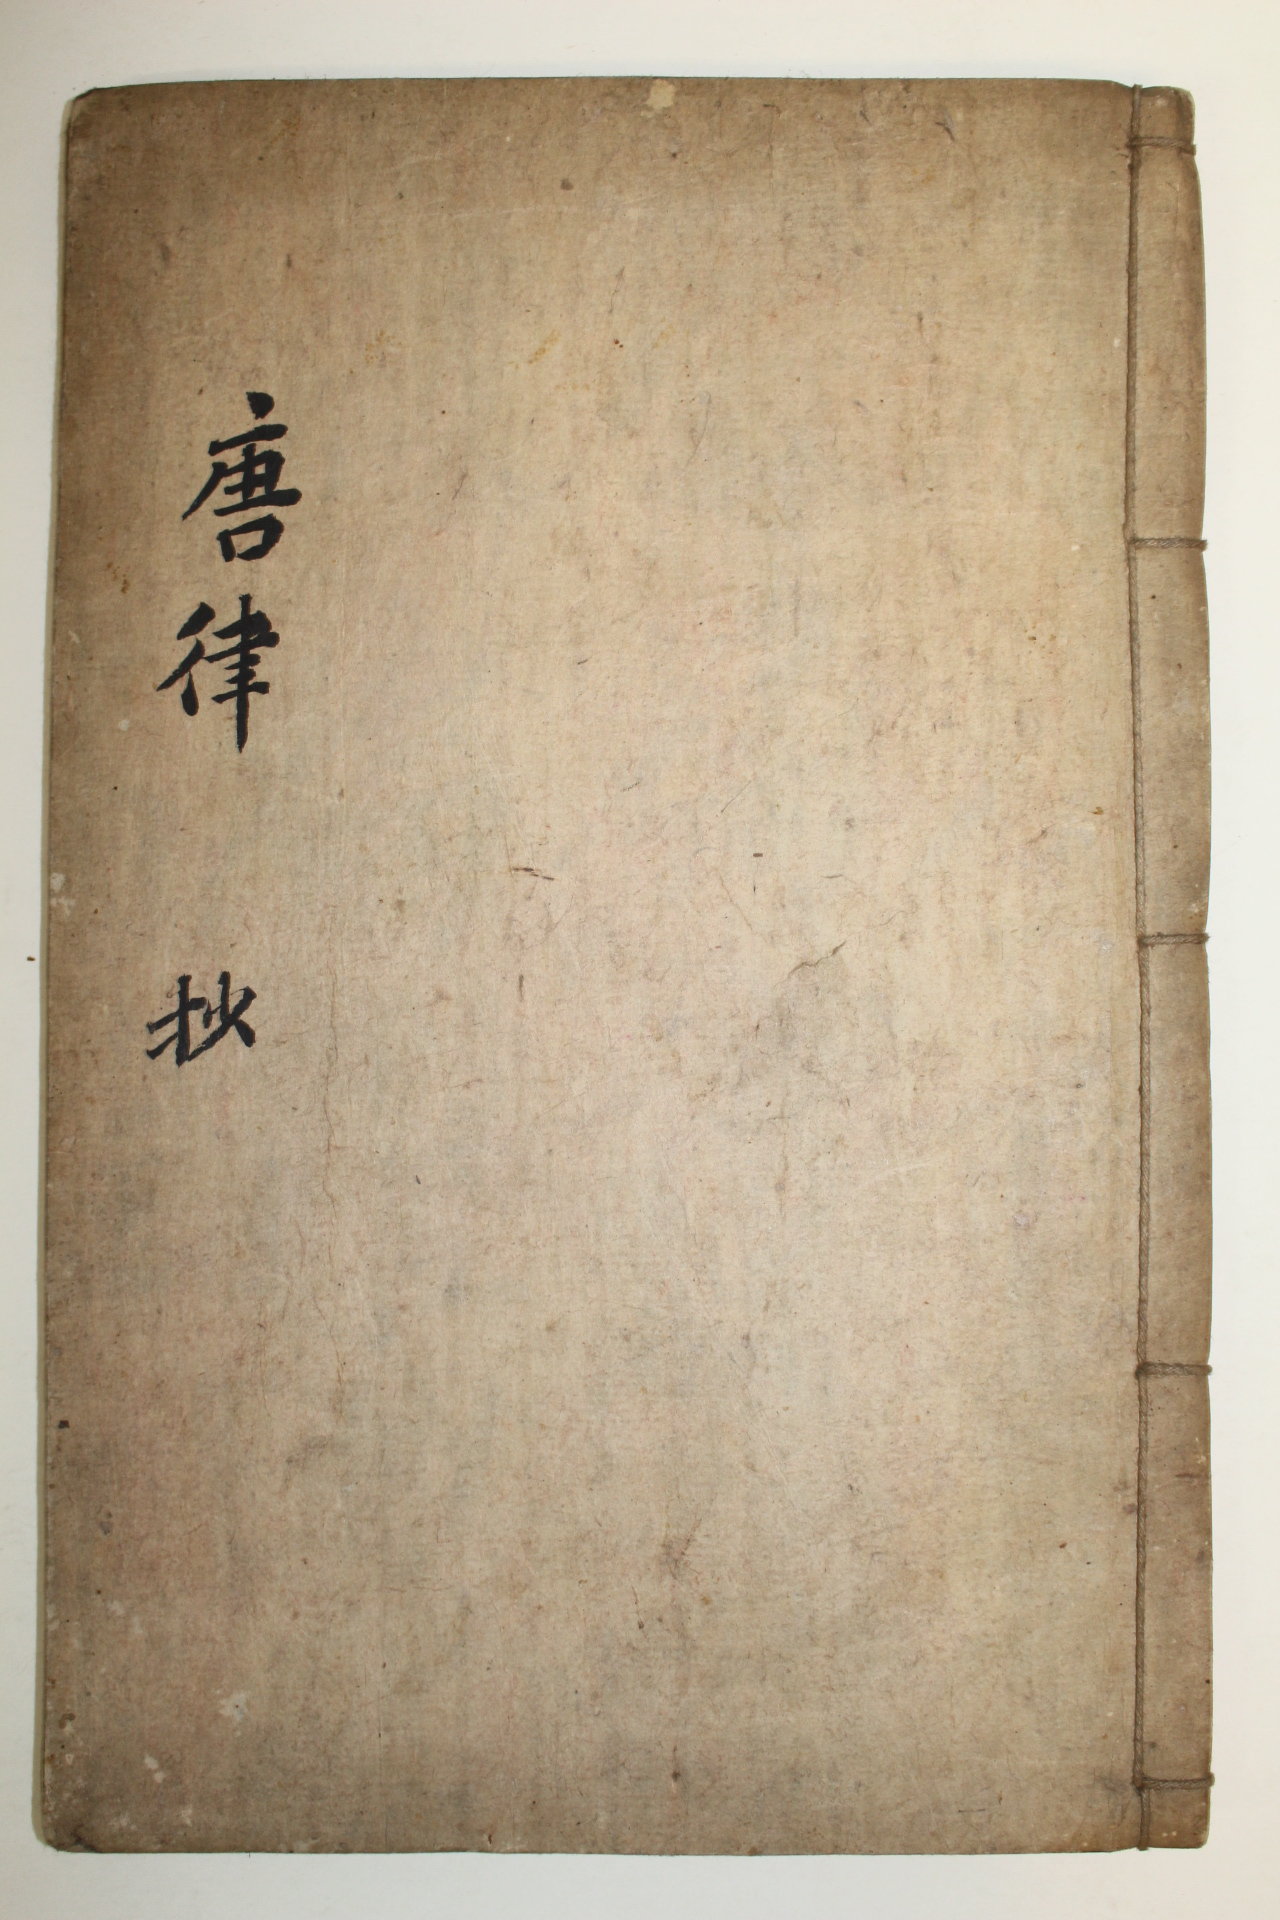 唐律 抄